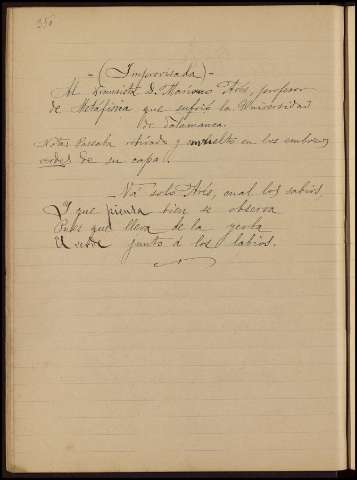 - (Improvisada) -
Al Krausista D. Mariano Arés, profesor
de Metafísica que sufrió la Universidad
de Salamanca.
Notas: Pasaba abrigado y envuelto en los embozos
verdes de su capa.
Va solo Arés, cual los sabios,
Y que piensa bien se observa
Pues que lleva de la yerba
El verde junto á los labios.